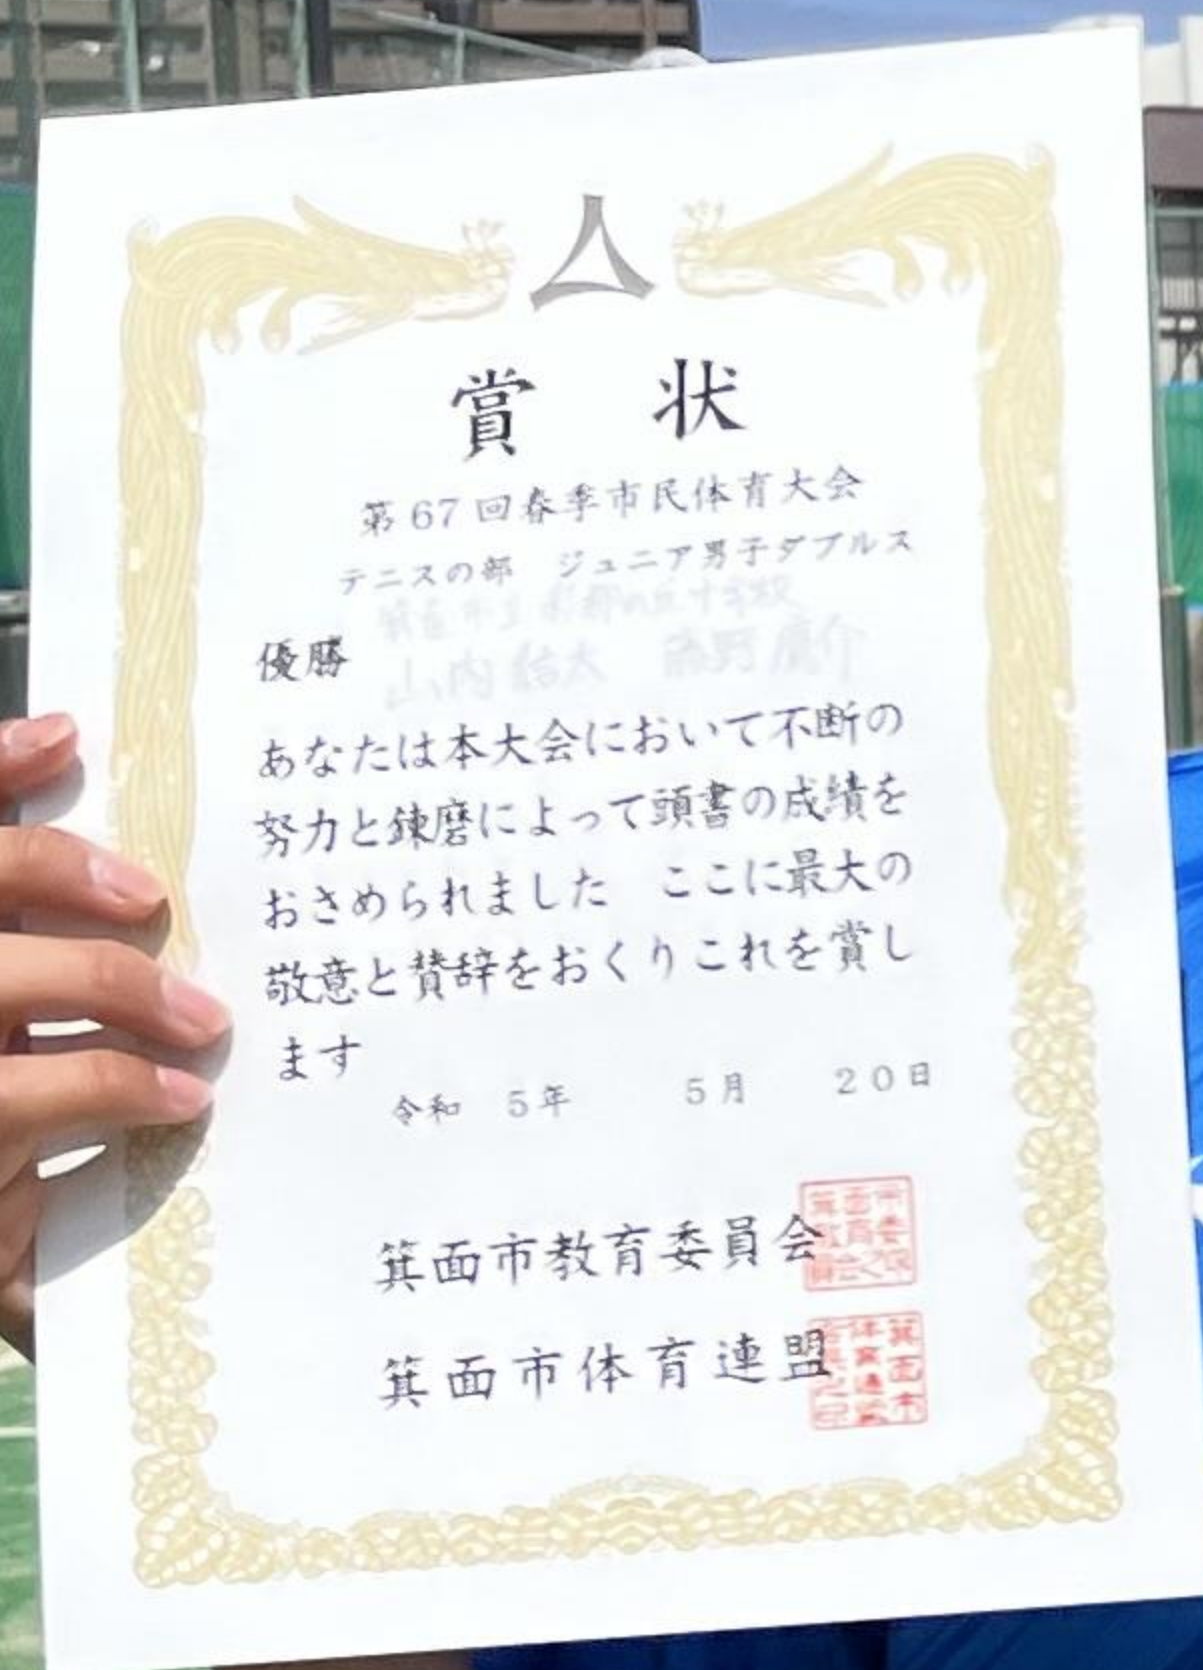 賞状
第67回春季市民体育大会
テニスの部 ジュニア男子ダブルス
優勝
山内 太 野 介
あなたは本大会において不断の
努力と錬磨によって頭書の成績を
おさめられました ここに最大の
敬意と賛辞をおくりこれを賞し
ます
令和 5年 5月 20日
箕面市教育委員会
箕面市体育連盟